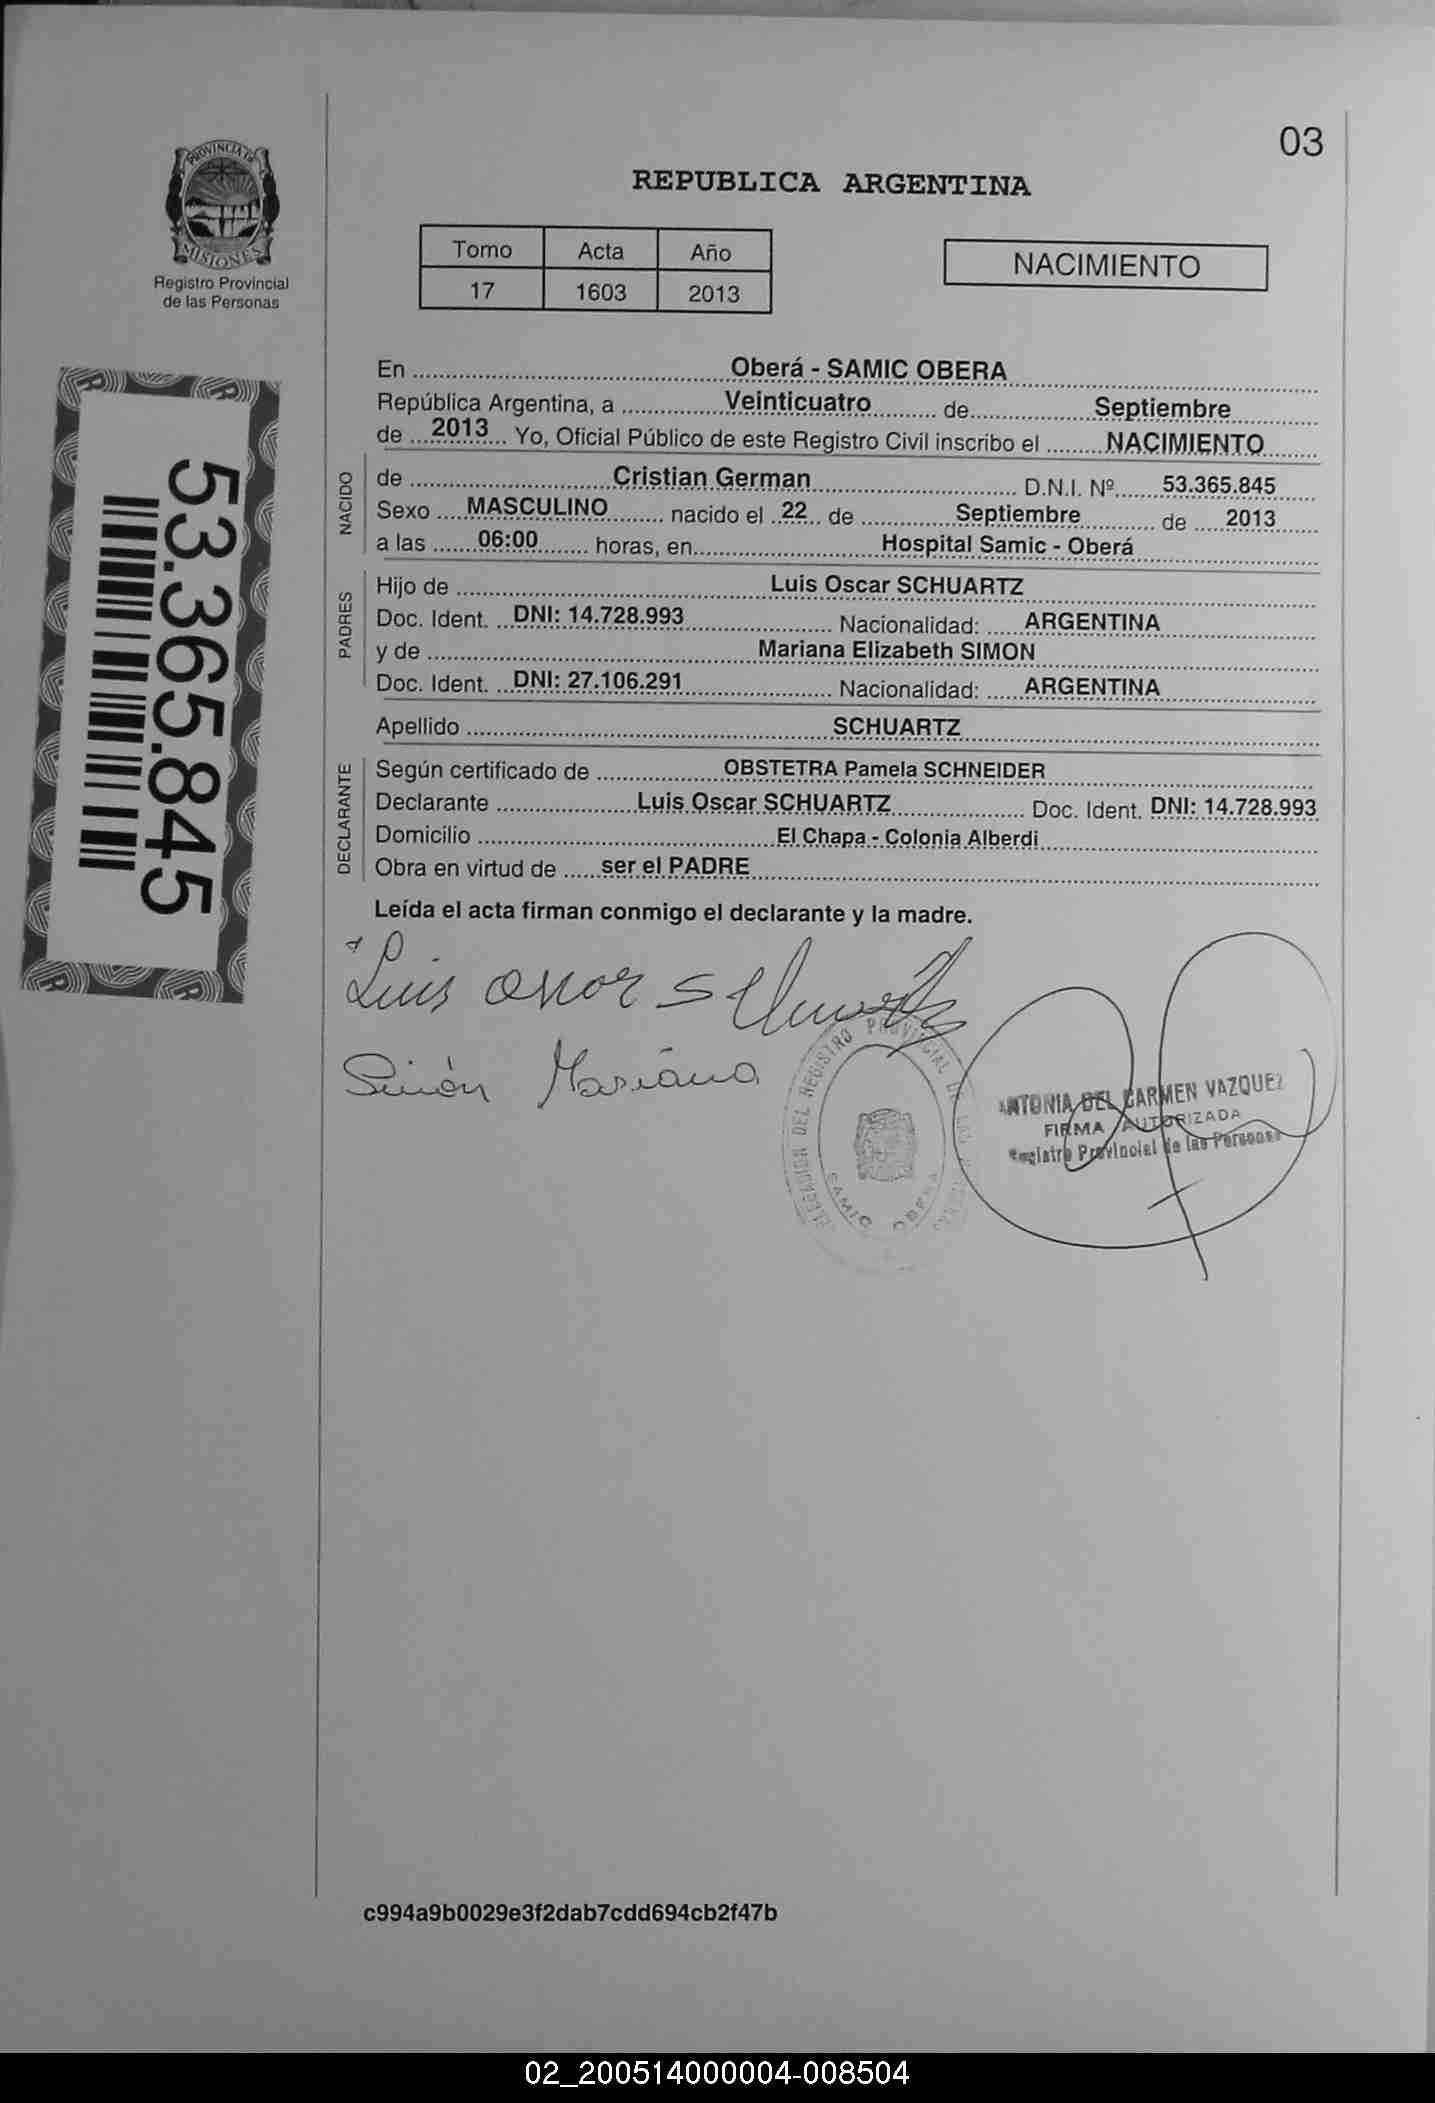 03
PROVINCIA DE
MISIONES
Registro Provincial
de las Personas
REPUBLICA ARGENTINA
Tomo Acta Año
17 1603 2013
NACIMIENTO
53.365.845
En Oberá - SAMIC OBERA
República Argentina, a Veinticuatro de Septiembre
de 2013 Yo, Oficial Público de este Registro Civil inscribo el NACIMIENTO
NACIDO
de Cristian German D.N.I. Nº 53.365.845
Sexo MASCULINO nacido el 22 de Septiembre de 2013
a las 06:00 horas, en Hospital Samic - Oberá
PADRES
Hijo de Luis Oscar SCHUARTZ
Doc. Ident. DNI: 14.728.993 Nacionalidad: ARGENTINA
y de Mariana Elizabeth SIMON
Doc. Ident. DNI: 27.106.291 Nacionalidad: ARGENTINA
Apellido SCHUARTZ
DECLARANTE
Según certificado de OBSTETRA Pamela SCHNEIDER
Declarante Luis Oscar SCHUARTZ Doc. Ident. DNI: 14.728.993
Domicilio El Chapa - Colonia Alberdi
Obra en virtud de ser el PADRE
Leída el acta firman conmigo el declarante y la madre.
Luis oscar Schuartz
Simón Mariana
DELEGACION DEL REGISTRO PROVINCIAL DE LAS
SAMIC OBERA
ANTONIA DEL CARMEN VAZQUEZ
FIRMA AUTORIZADA
Registro Provincial de las Personas
c994a9b0029e3f2dab7cdd694cb2f47b
02_200514000004-008504